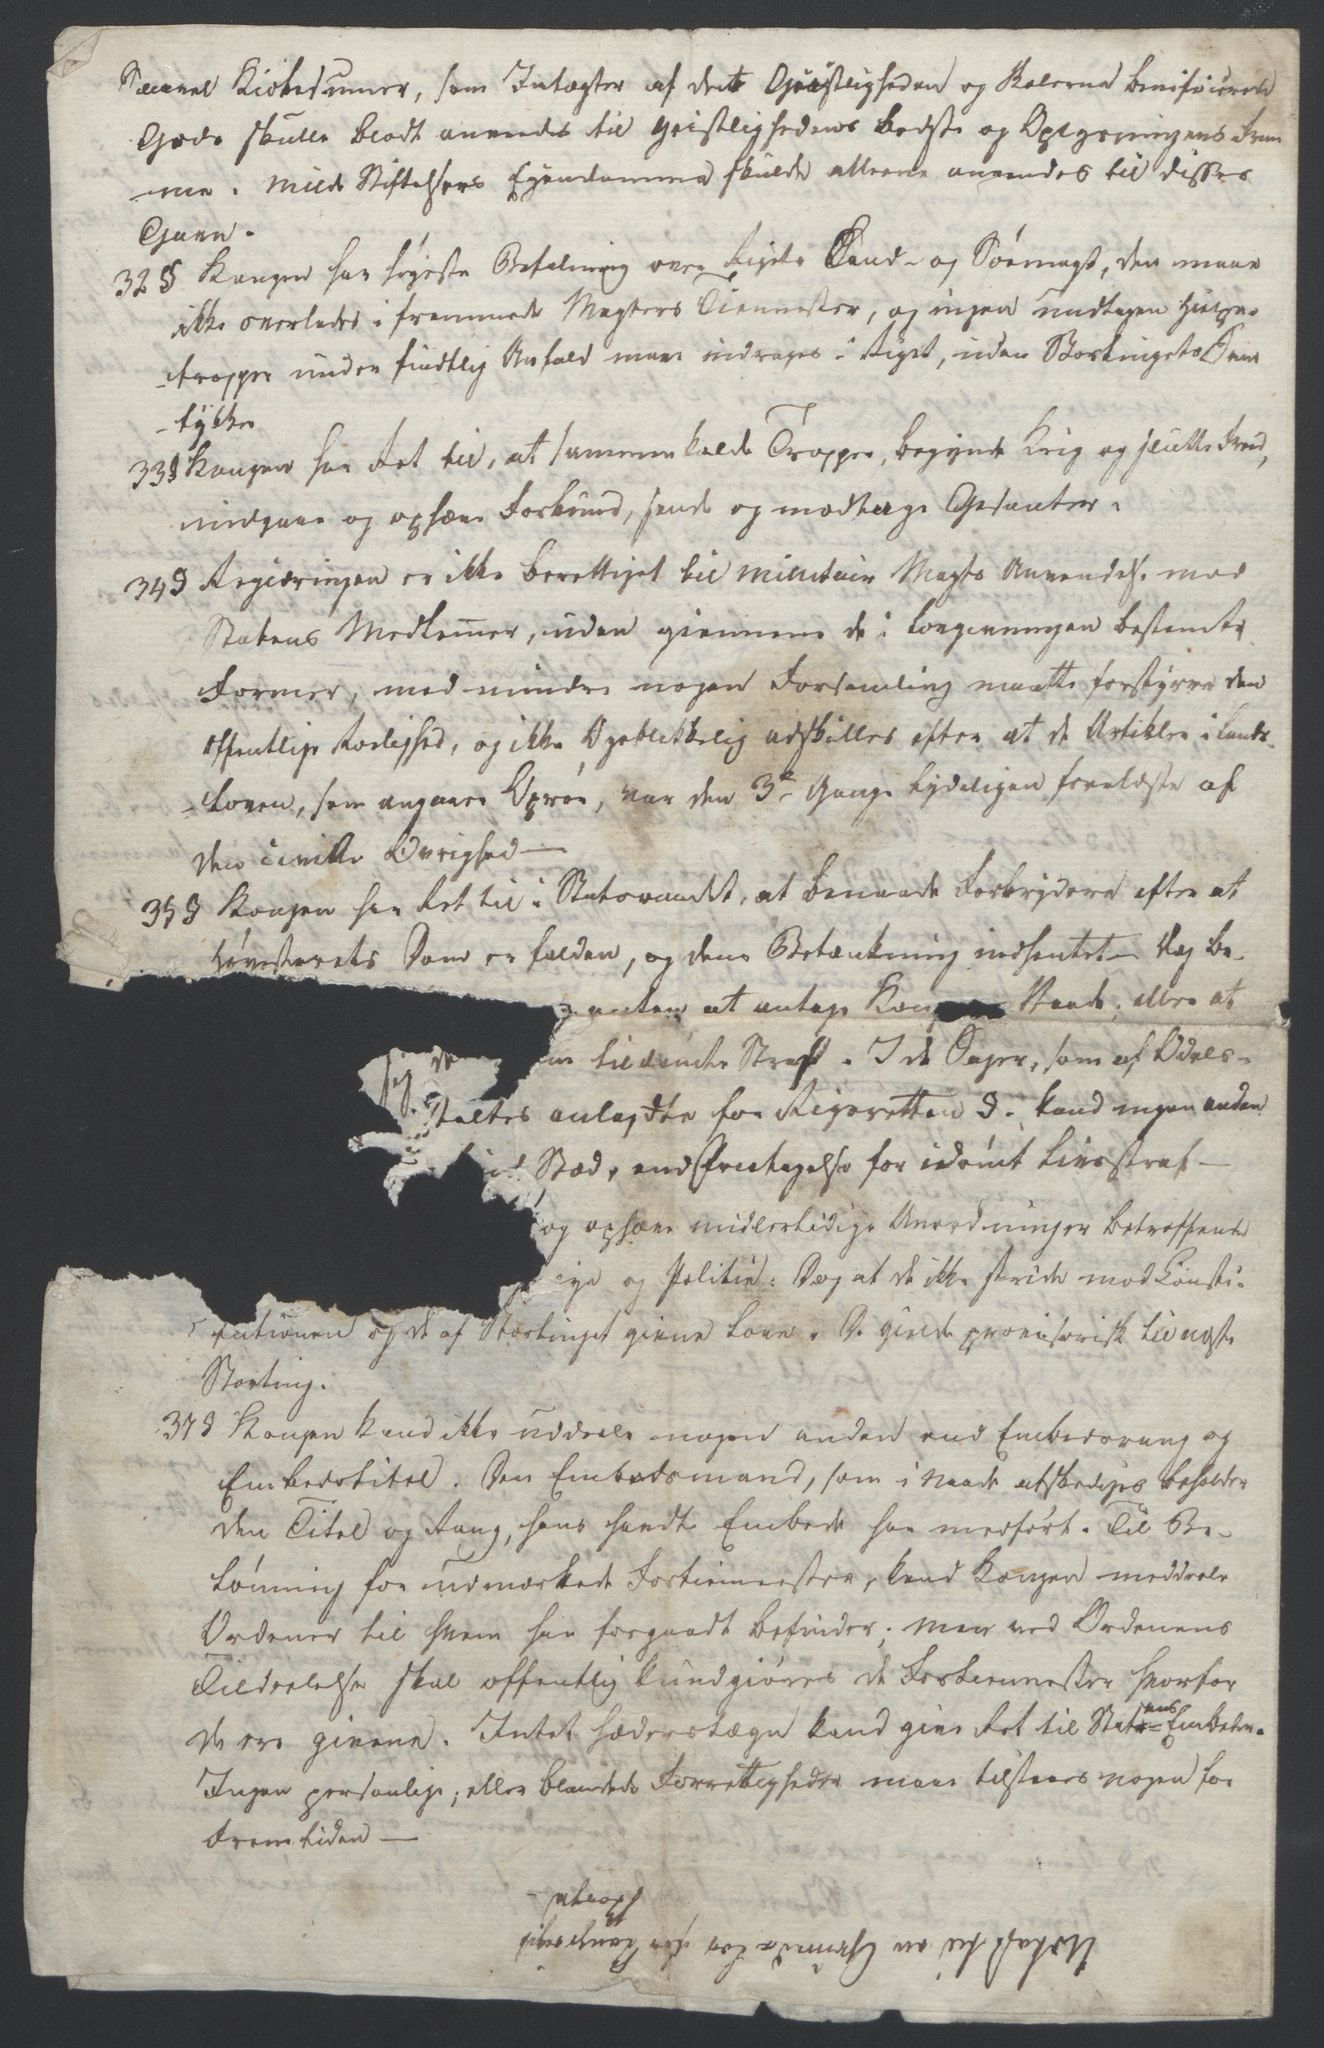 Saavel Kiøbesummer, som Intægter af det Geistligheden og Skolerne benificerede
Gods skulle blodt anvendes til Geistlighedens bedste og Oplysningens Frem
-me. milde Stiftelsers Eyendomme skulde alleene anvendes til disses
Gavn.
32 § Kongen har høyeste Befalning over Rigets Land- og Søemagt, den maae
ikke overlades i fremmede Magters Tienester, og ingen undtagen Hielpe-
-tropper under fiendtlig Anfald maae inddrages i Riget, uden Stortingets Sam
-tykke
33 § Kongen har Ret til, at sammenkalde Tropper, begynde Krig og slutte Fred,
indgaae og ophæve Forbund, sende og modtage Gesanter.
34 § Regieringen er ikke berettiget til militair Magts Anvendelse mod
Statens Medlemmer, uden giennem de i Lovgivningen bestemte
Former, med mindre nogen Forsamling maatte forstyrre den
offentlige Roelighed, og ikke Øyeblikkelig adskilles efter at de Artikler i Lands-
-Loven, som angaaer Oprør, var den 3de Gang tydeligen forelæste af
den civille Øvrighed —
35 § Kongen har Ret til i Statsraadet, at benaade Forbrydere efter at
Høiesterets Dom er falden, og dens Betænkning indhentet. Dog be-
enten at antage Kongens Naade, eller at
sig den ham tildømte Straff. I de Sager, som af Odels-
taltes anlagdte for Rigsretten §. kand ingen anden
Sted, end Fritagelse for idømt Livsstraf —
og ophæve midlertidige Anordninger betreffende
og Politie. Dog at de ikke stride mod Consti-
tutionen og de af Stortinget givne Love. De gielde provisorisk til næste
Storting.
37 § Kongen kand ikke uddeele nogen anden end Embedsrang og
Embedstitel. Den Embedsmand, som i Naade afskediges beholder
den Titel og Rang, hans havdte Embede har medført. Til Be-
lønning for udmærkede Fortienester, kand Kongen meddeele
Ordener til hvem han forgaadt befinder; men ved Ordenens
Tildeelelse skal offentlig kundgiøres de Fortienester hvorfor
de ere givene. Intet Hæderstægn kand give Ret til Statens Embeder.
Ingen personlige, eller blandede Forrettigheder maae tilstaaes nogen for
Fremtiden —